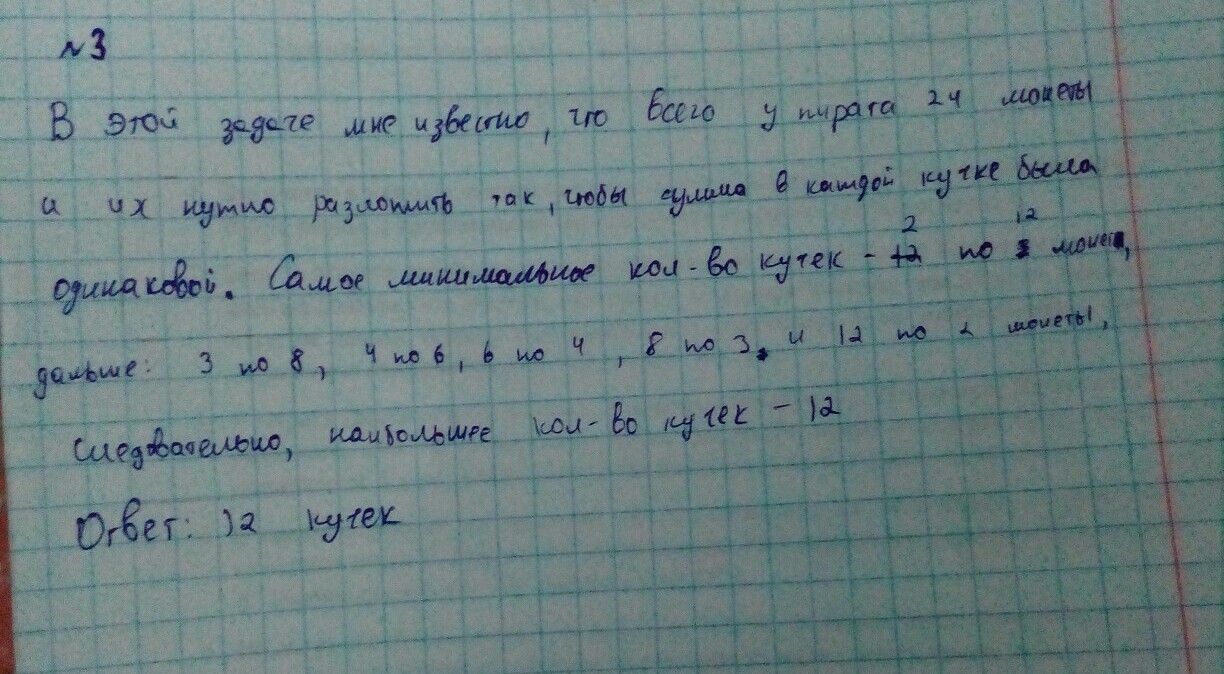 №3
В этой задаче мне известно, что всего у пирата 24 монеты
и их нужно разложить так, чтобы сумма в каждой кучке была
одинаковой. Самое минимальное кол-во кучек - 2 по 12 монет,
дальше: 3 по 8, 4 по 6, 6 по 4, 8 по 3, и 12 по 2 монеты,
следовательно, наибольшее кол-во кучек - 12
Ответ: 12 кучек